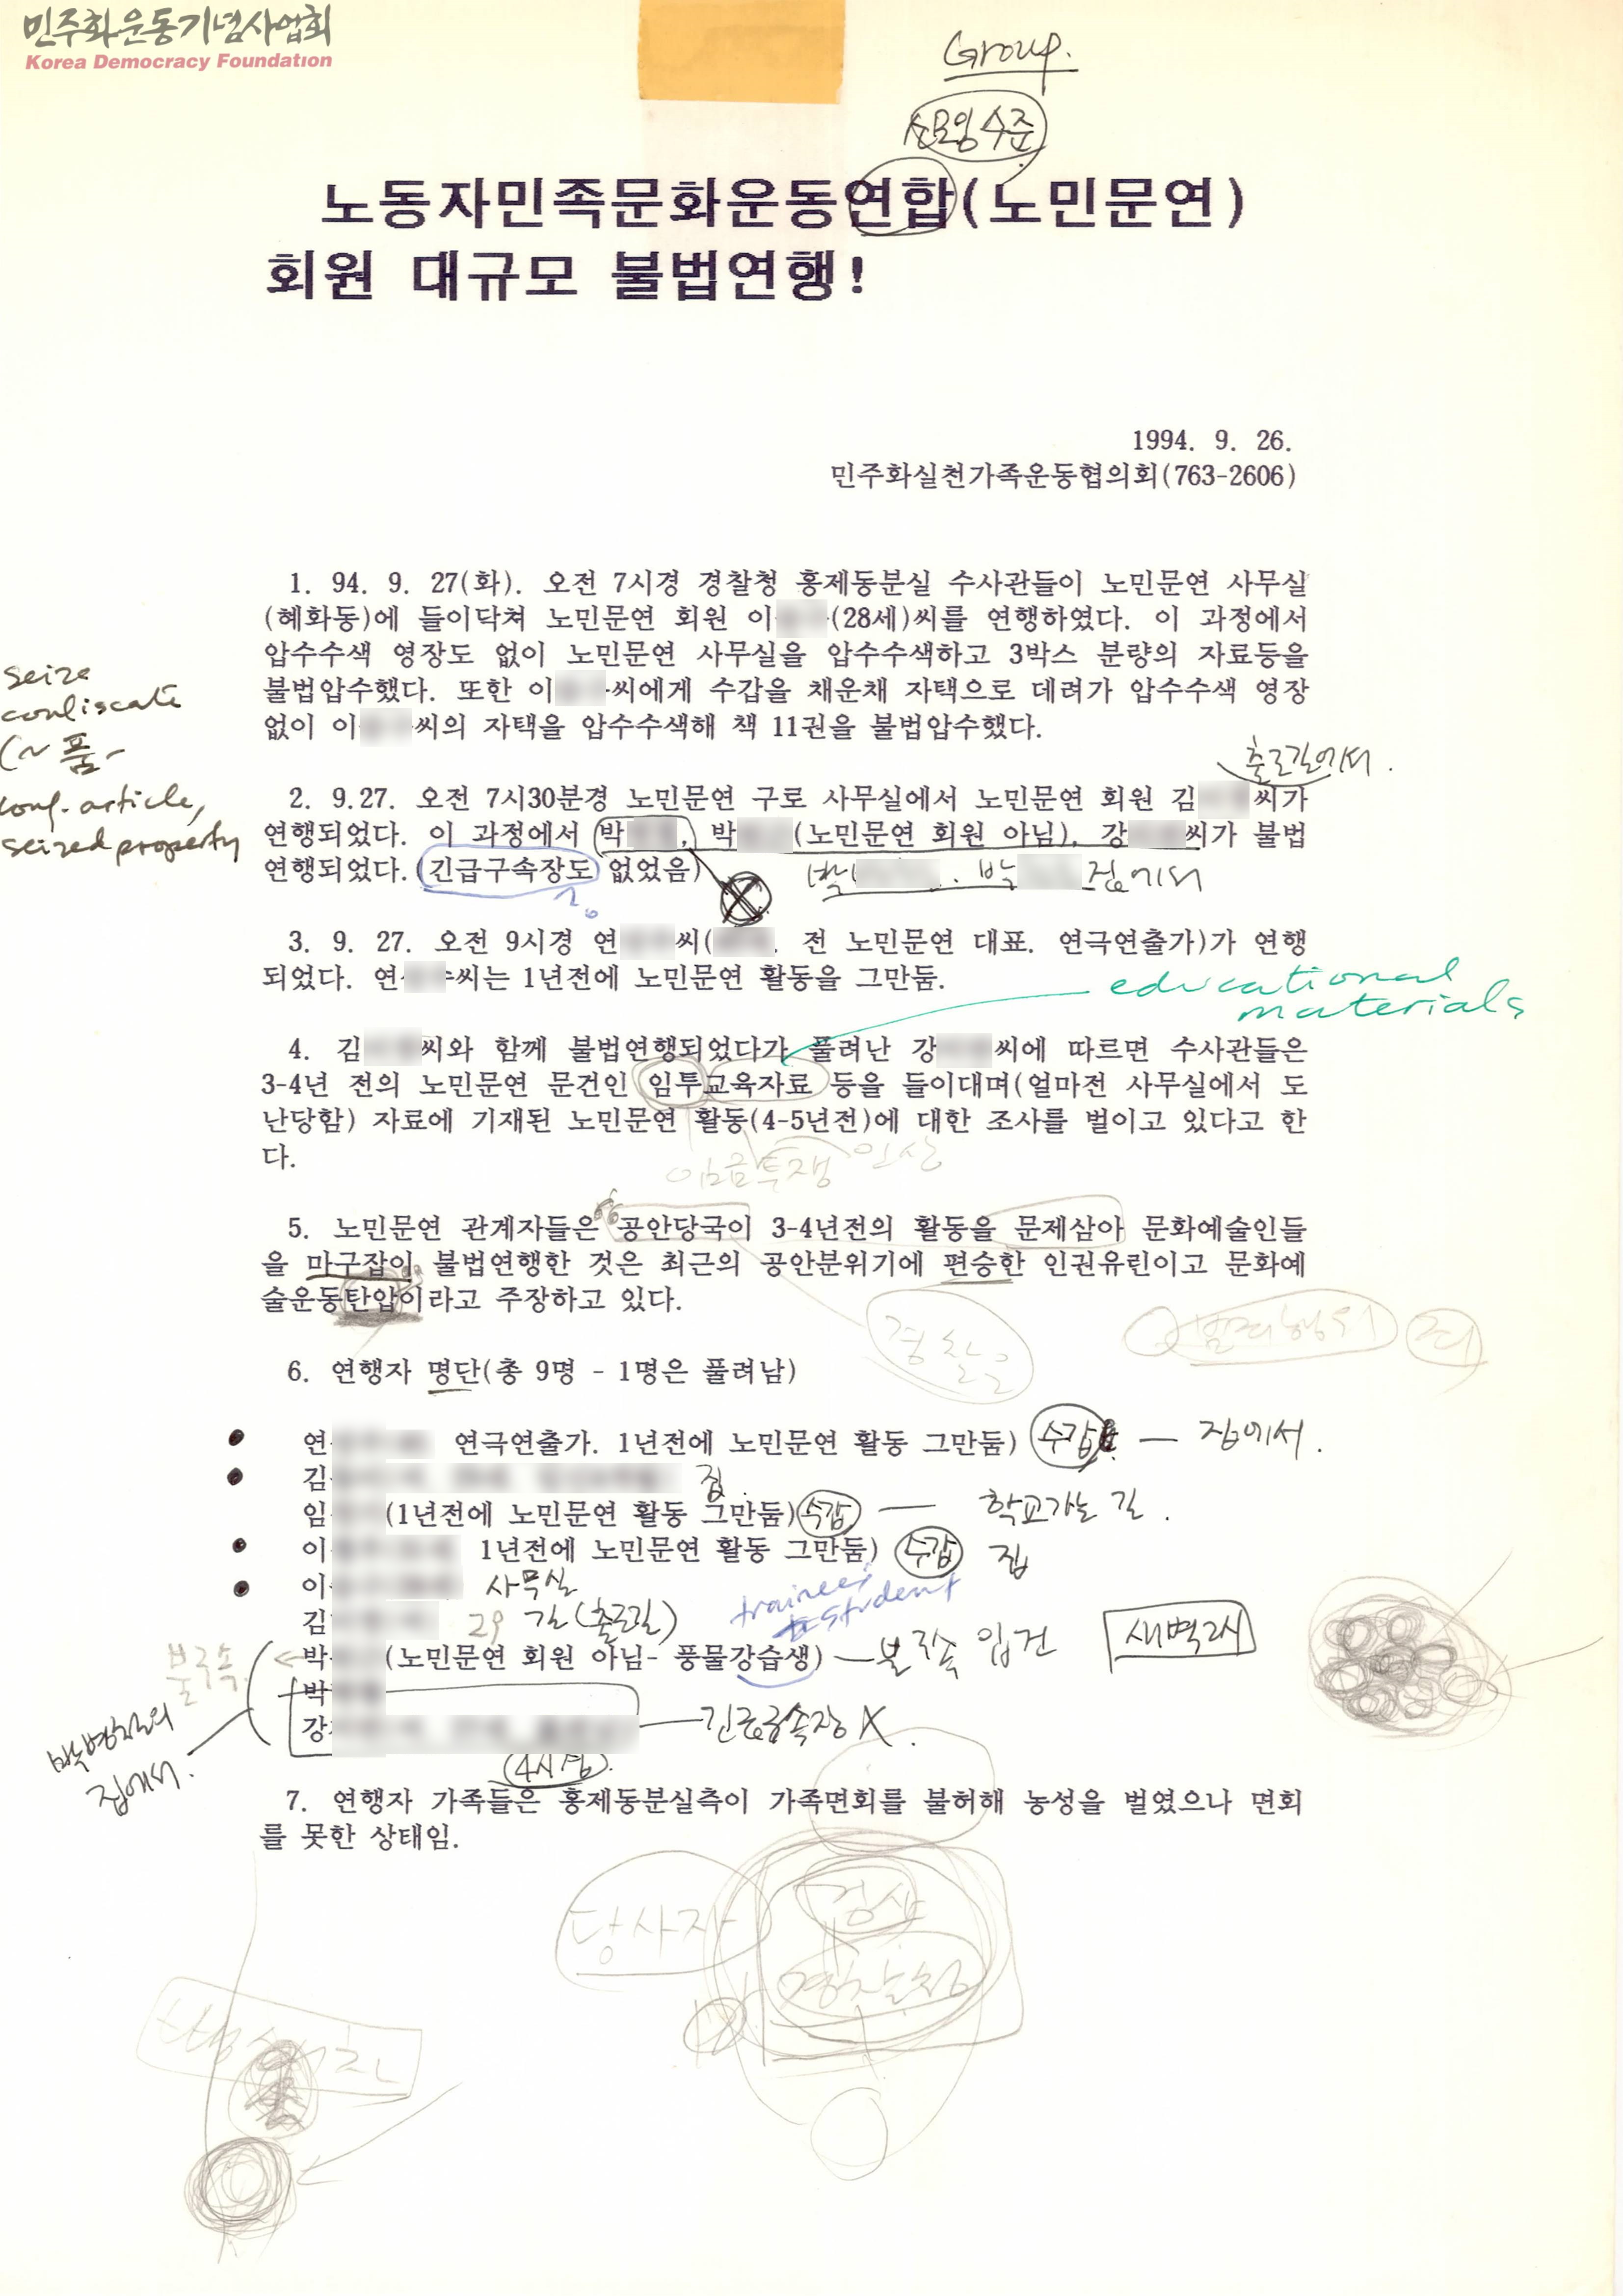 민주화운동기념사업회
Korea Democracy Foundation
Group.
소모임 수준
노동자민족문화운동연합(노민문연)
회원 대규모 불법연행!
1994. 9. 26.
민주화실천가족운동협의회(763-2606)
1. 94. 9. 27(화). 오전 7시경 경찰청 홍제동분실 수사관들이 노민문연 사무실
(혜화동)에 들이닥쳐 노민문연 회원 이 (28세)씨를 연행하였다. 이 과정에서
압수수색 영장도 없이 노민문연 사무실을 압수수색하고 3박스 분량의 자료등을
불법압수했다. 또한 이 씨에게 수갑을 채운채 자택으로 데려가 압수수색 영장
없이 이 씨의 자택을 압수수색해 책 11권을 불법압수했다.
seize
confiscate
(~품-
conf. article,
seized property
출근길에서.
2. 9.27. 오전 7시30분경 노민문연 구로 사무실에서 노민문연 회원 김 씨가
연행되었다. 이 과정에서 박 , 박 (노민문연 회원 아님), 강 씨가 불법
연행되었다.(긴급구속장도 없었음)
박 . 박 집에서
3. 9. 27. 오전 9시경 연 씨( . 전 노민문연 대표. 연극연출가)가 연행
되었다. 연 씨는 1년전에 노민문연 활동을 그만둠.
educational
materials
4. 김 씨와 함께 불법연행되었다가 풀려난 강 씨에 따르면 수사관들은
3-4년 전의 노민문연 문건인 임투교육자료 등을 들이대며(얼마전 사무실에서 도
난당함) 자료에 기재된 노민문연 활동(4-5년전)에 대한 조사를 벌이고 있다고 한
다.
임금투쟁 인상
5. 노민문연 관계자들은 공안당국이 3-4년전의 활동을 문제삼아 문화예술인들
을 마구잡이 불법연행한 것은 최근의 공안분위기에 편승한 인권유린이고 문화예
술운동탄압이라고 주장하고 있다.
경찰은
범죄행위
죄
6. 연행자 명단(총 9명 - 1명은 풀려남)
연 연극연출가. 1년전에 노민문연 활동 그만둠) 수갑 — 집에서.
김 집.
임 (1년전에 노민문연 활동 그만둠) 수갑 — 학교가는 길.
이 1년전에 노민문연 활동 그만둠) 수갑 집
이 사무실
김 29 길(출근길)
trainee
student
불구속
박 (노민문연 회원 아님- 풍물강습생) — 불구속 입건 새벽2시
박
강 — 긴급구속장 X.
집에서.
(4시경).
7. 연행자 가족들은 홍제동분실측이 가족면회를 불허해 농성을 벌였으나 면회
를 못한 상태임.
당사자
검사
경찰청